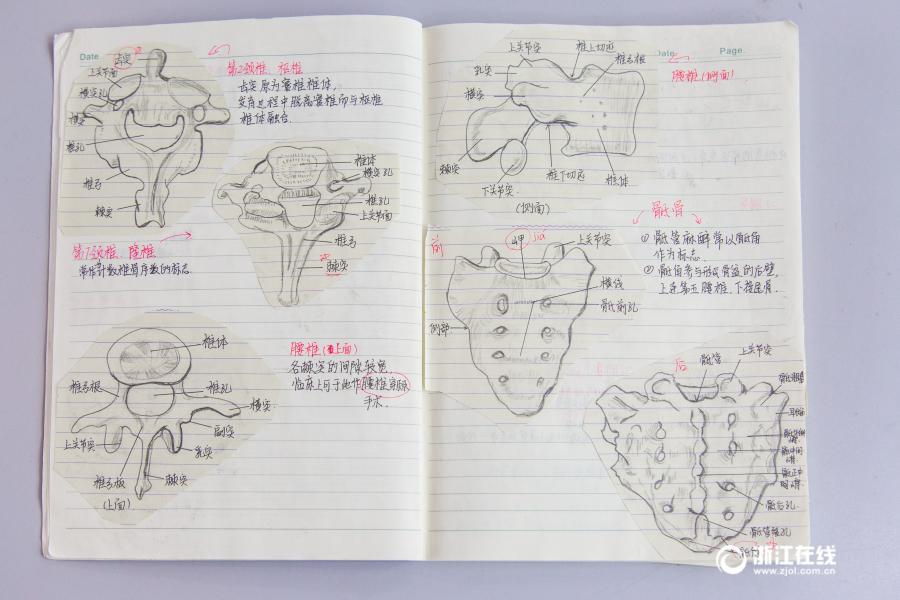 Date
齿突
上关节面
横突孔
横突
椎孔
椎弓
棘突
第2颈椎、枢椎
齿突原为寰椎椎体,
发育过程中脱离寰椎而与枢椎
椎体融合.
椎体
横突孔
椎孔
上关节面
椎弓
棘突
第7颈椎、隆椎
常作计数椎骨序数的标志.
椎体
椎弓根
椎孔
横突
上关节突
副突
乳突
椎弓板
棘突
(上面)
腰椎(上面)
各棘突的间隙较宽
临床上可于此作腰椎穿刺
手术.
Date
Page.
上关节突
椎上切迹
椎弓根
乳突
横突
棘突
下关节突
椎下切迹
椎体
(侧面)
腰椎(侧面)
骶骨
① 骶管麻醉常以骶角
作为标志.
② 骶骨参与形成骨盆的后壁,
上连第五腰椎,下接尾骨.
前
岬
jiǎ
上关节突
横线
骶前孔
侧部
后
骶管
上关节突
骶粗隆
耳状面
骶外侧
嵴
骶中间
嵴
骶正中
嵴
骶后孔
骶管裂孔
浙江在线
www.zjol.com.cn